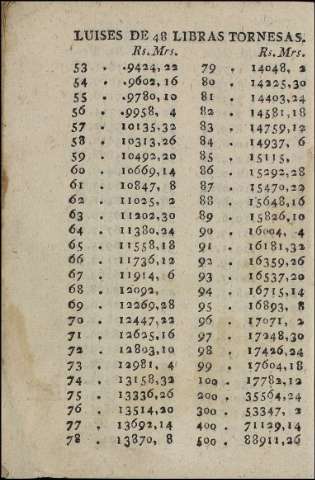 LUISES DE 48 LIBRAS TORNESAS.
Rs. Mrs. Rs. Mrs.
53 . .9424, 22 79 . 14048, 2
54 . .9602, 16 80 . 14225,30
55 . .9780, 10 81 . 14403,24
56 . .9958, 4 82 . 14581,18
57 . 10135,32 83 . 14759,12
58 . 10313,26 84 . 14937, 6
59 . 10492,20 85 . 15115,
60 . 10669,14 86 . 15292,28
61 . 10847, 8 87 . 15470,22
62 . 11025, 2 88 . 15648,16
63 . 11202,30 89 . 15826,10
64 . 11380,24 90 . 16004, 4
65 . 11558,18 91 . 16181,32
66 . 11736,12 92 . 16359,26
67 . 11914, 6 93 . 16537,20
68 . 12092, 94 . 16715,14
69 . 12269,28 95 . 16893, 8
70 . 12447,22 96 . 17071, 2
71 . 12625,16 97 . 17248,30
72 . 12803,10 98 . 17426,24
73 . 12981, 4 99 . 17604,18
74 . 13158,32 100 . 17782,12
75 . 13336,26 200 . 35564,24
76 . 13514,20 300 . 53347, 2
77 . 13692,14 400 . 71129,14
78 . 13870, 8 500 . 88911,26